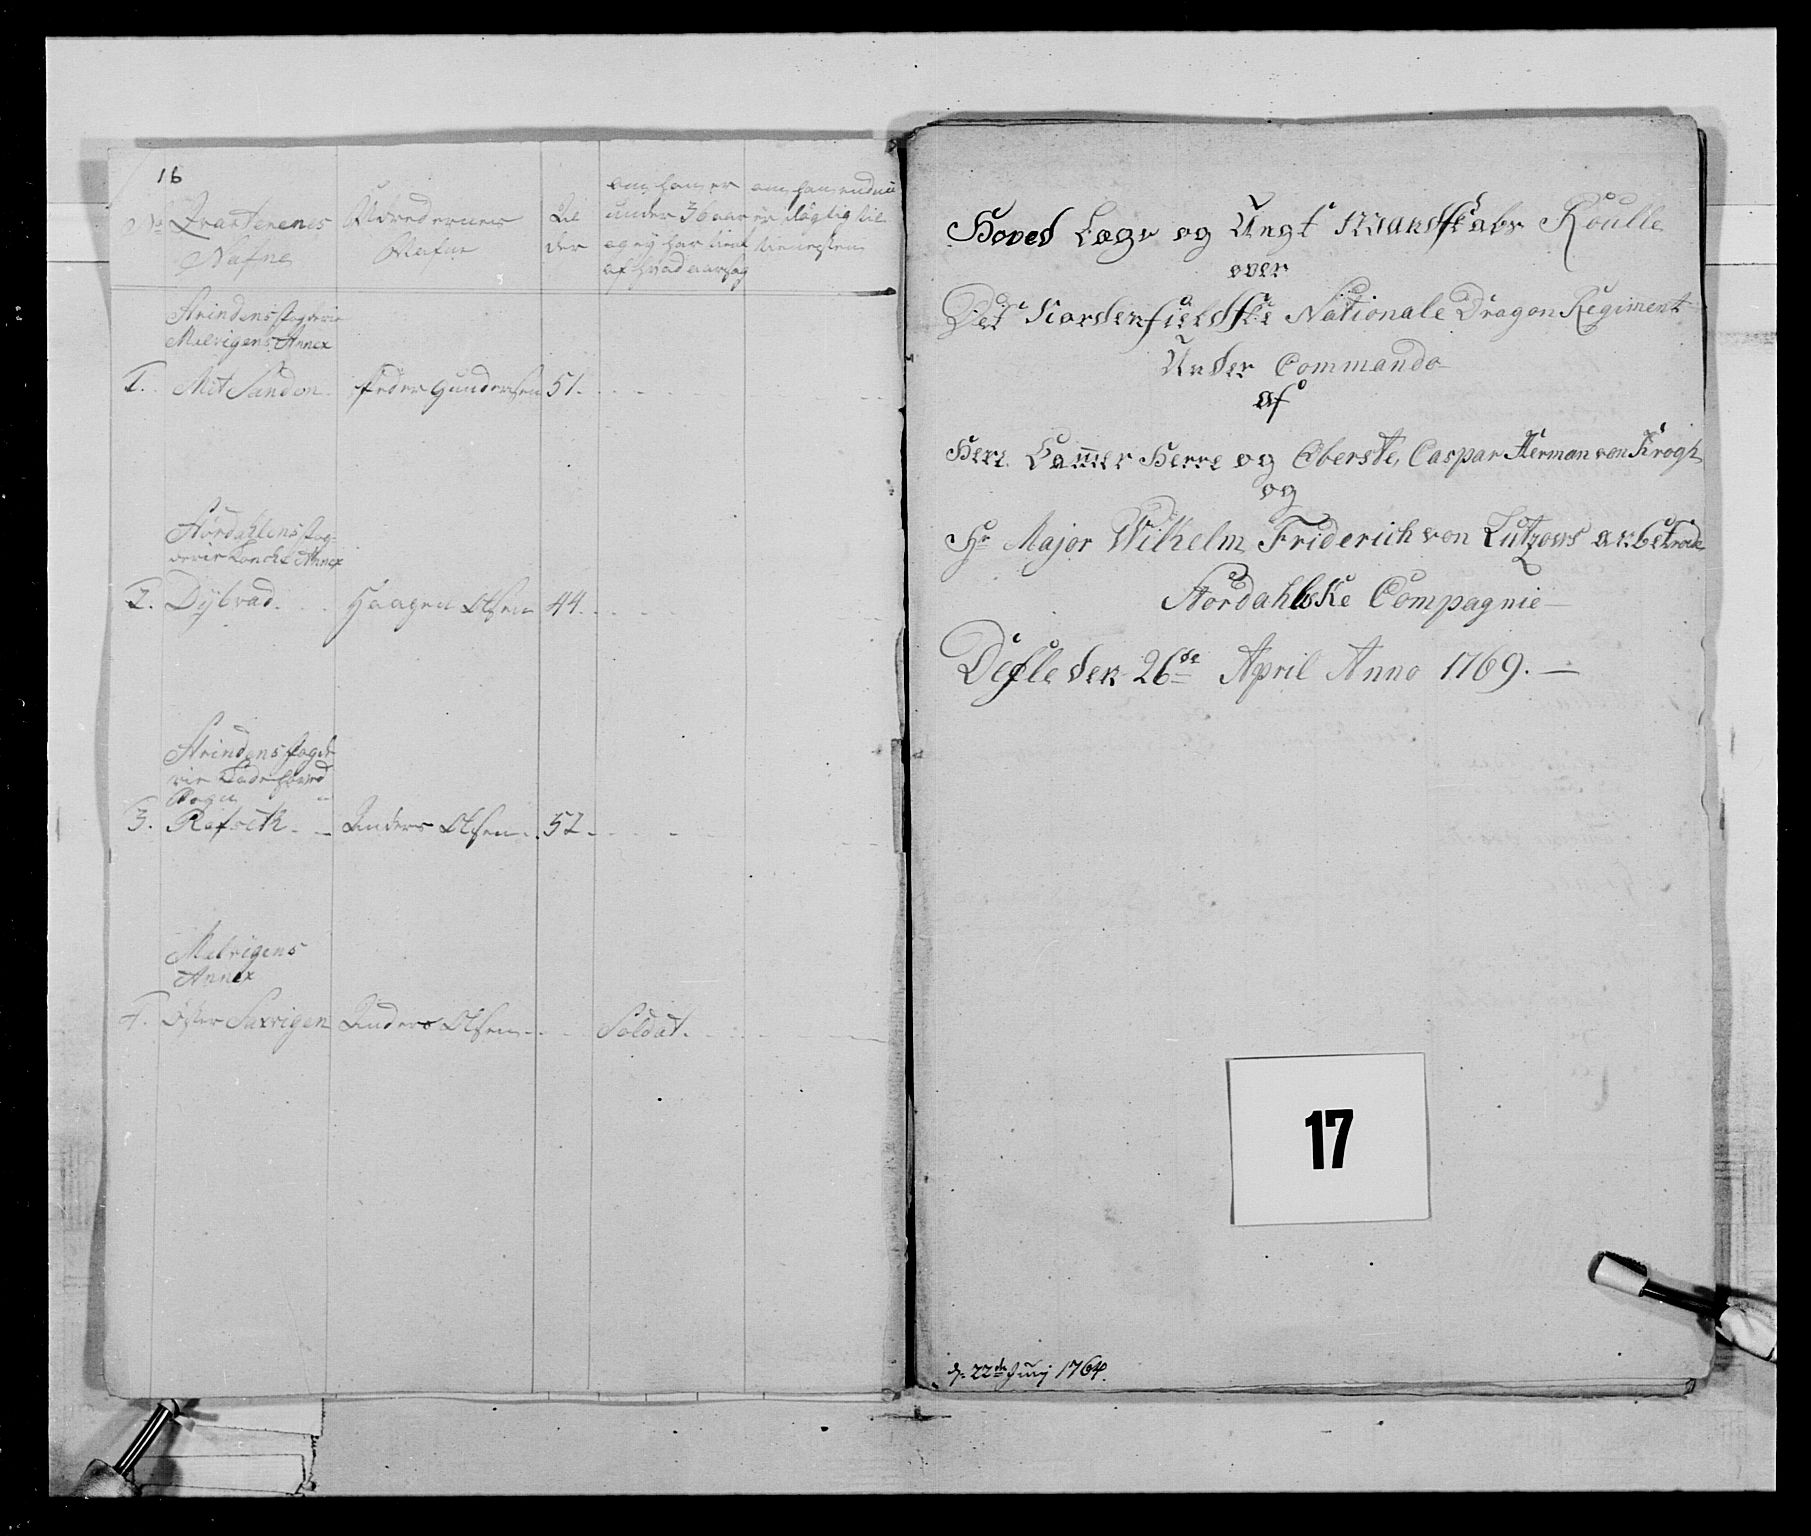 16
No Qvarterenes Nafne
Udredernes Nafne
Al der
om han er under 36 aar og ej har tient af hvad aarsag
om han endnu er dygtig til tienesten
Strindens fogderie
Malvigens Annex
1. Mit Sanden Peder Gundersen 51.
Størdahlens fog-
derie Annex
2. Dybvad. Haagen Olsen 44.
Strindens fogde-
rie
Sogn
3. Refseth Anders Olsen 52
Malvigens
Annex
4. Øster Saxvigen Anders Olsen Soldat.
Hoved Lægs og Ungt Mandskabs Roulle
over
Det Nordenfieldske Nationale Dragon Regiment
Under Commando
af
Herr Cammer Herre og Oberste, Caspar Herman von Krogh
og
Hr Major Wilhelm Friderich von Lützows anbetroede
Størdahlske Compagnie
Defle den 26de April Anno 1769.
17
d. 22de Junij 1764.